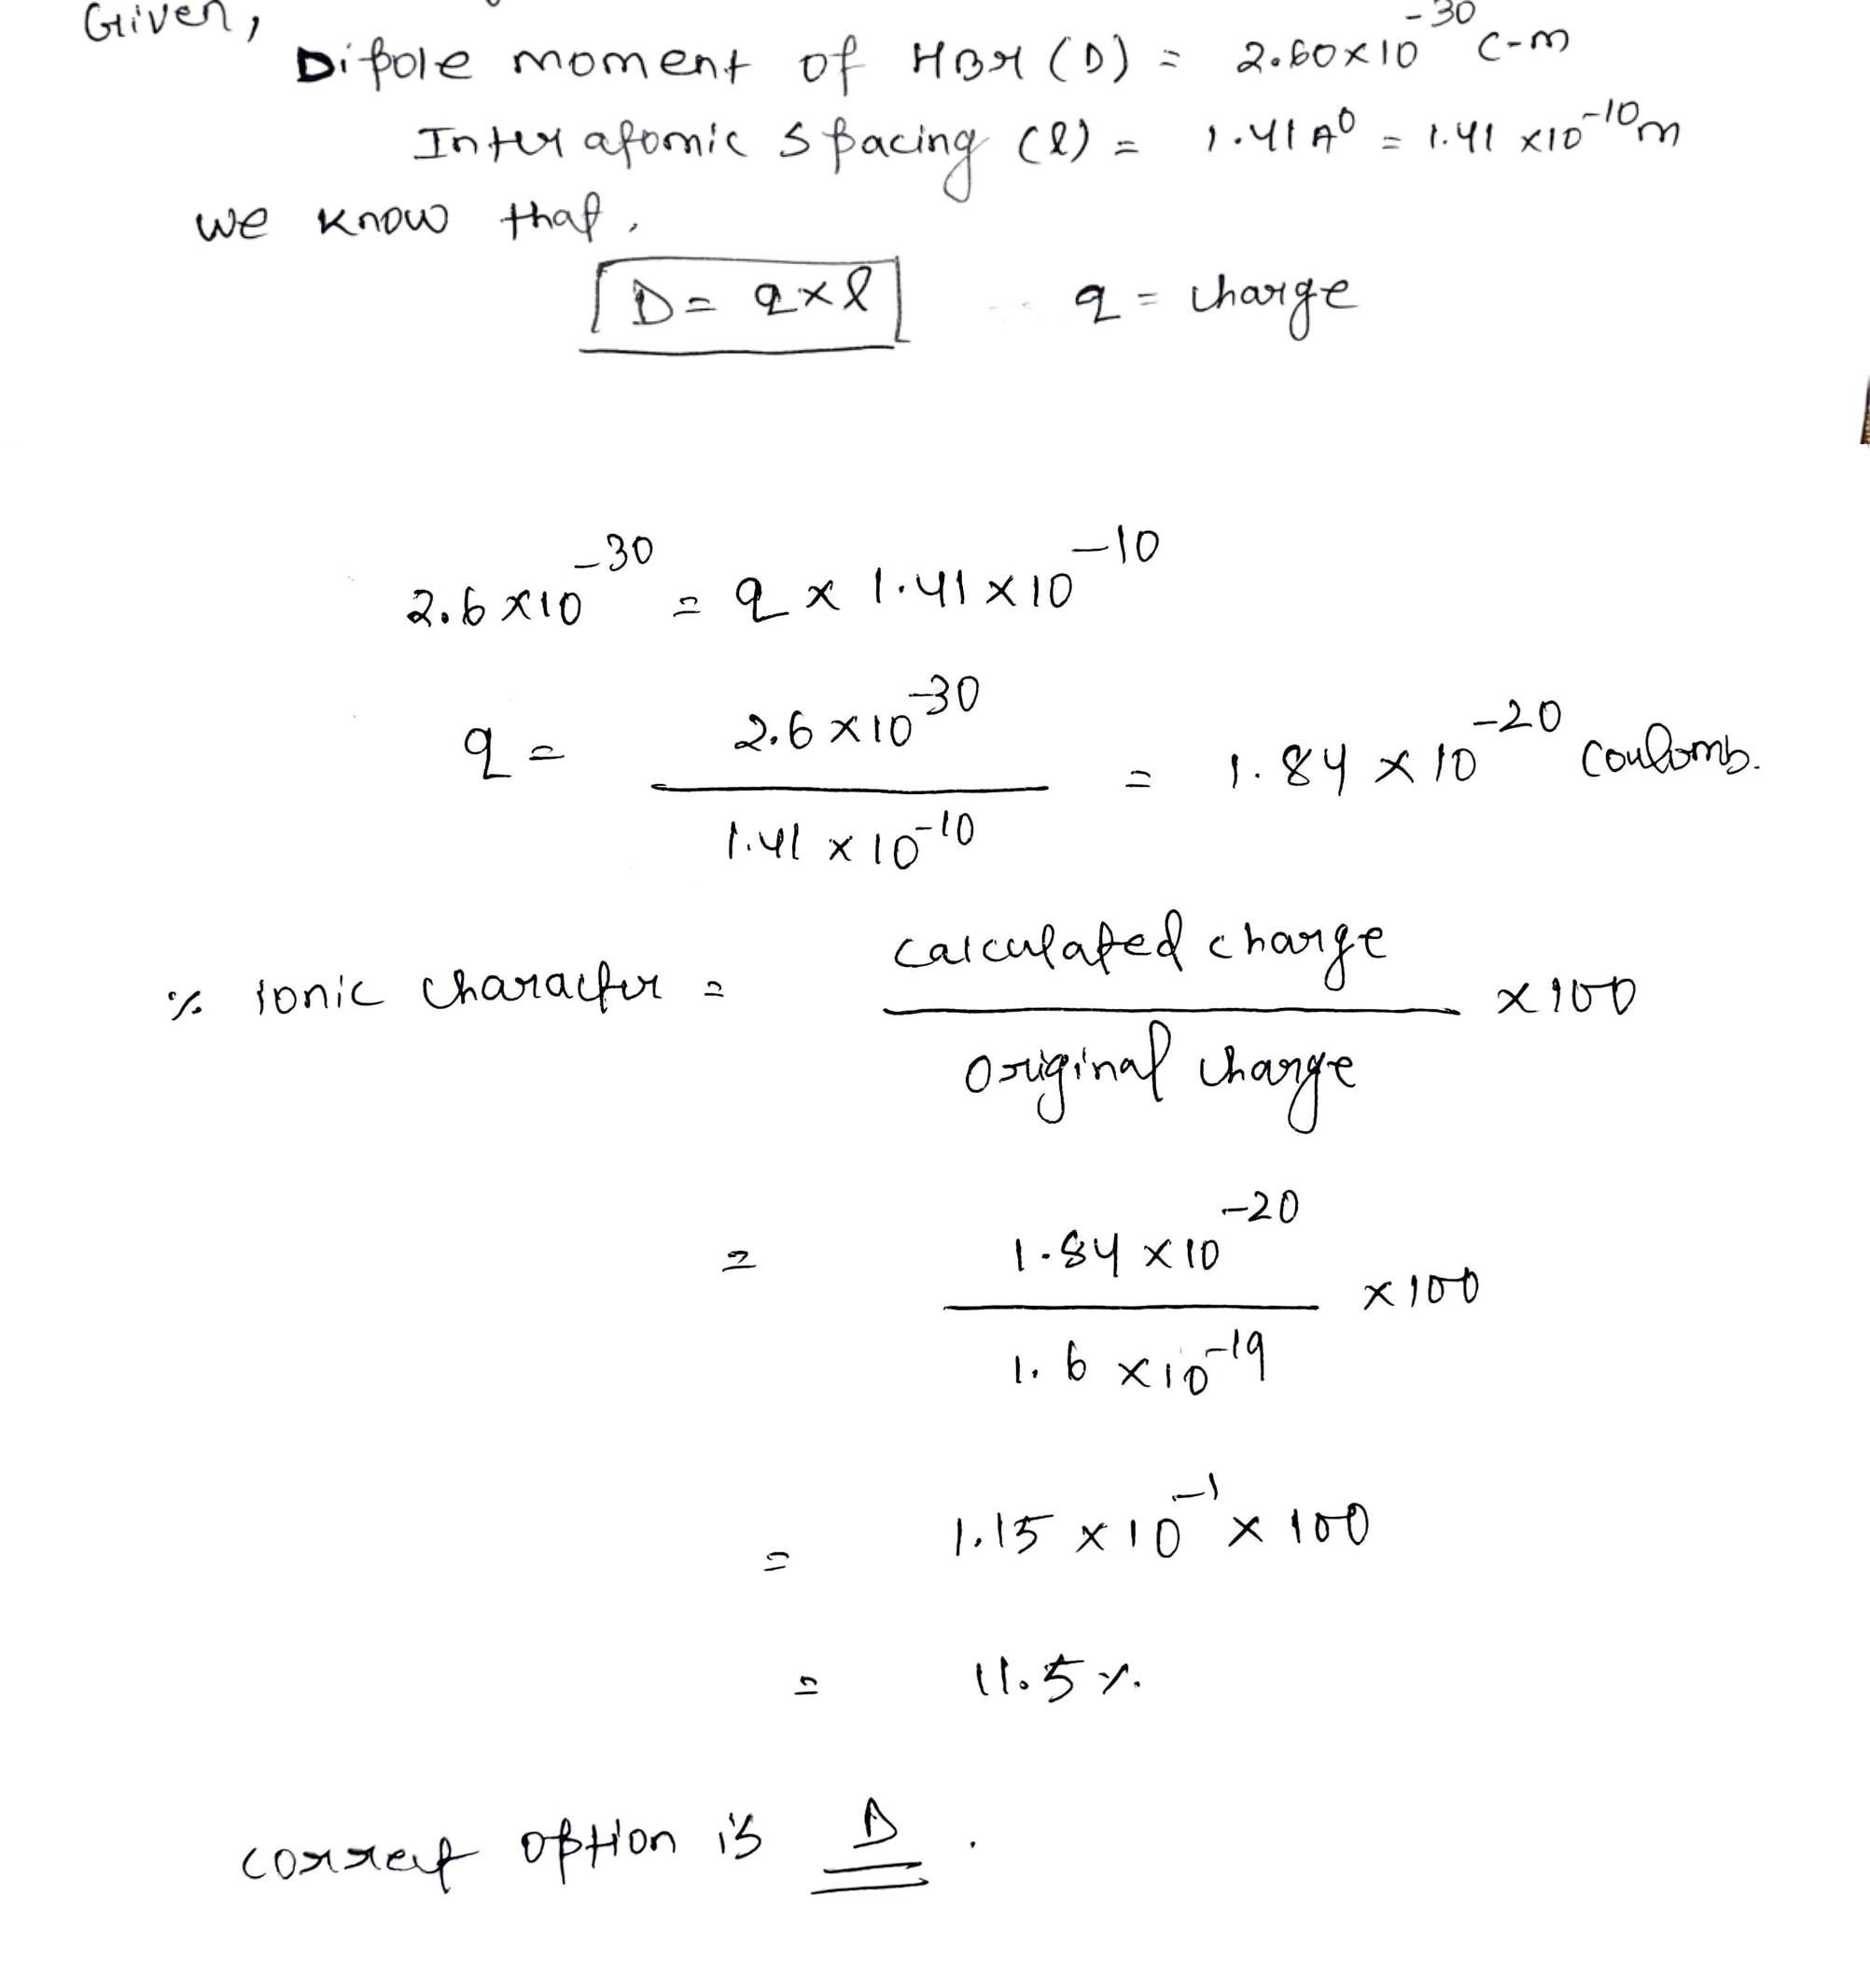 Given,
Dipole moment of HBr (D) = 2.60×10⁻³⁰ C-m
Inter atomic spacing (l) = 1.41 A⁰ = 1.41 ×10⁻¹⁰ m
we know that,
D = q×l    q = charge
2.6 ×10⁻³⁰ = q × 1.41×10⁻¹⁰
q = 2.6 ×10⁻³⁰ / 1.41 × 10⁻¹⁰ = 1.84 × 10⁻²⁰ Coulomb.
% ionic character = calculated charge / original charge ×100
= 1.84 ×10⁻²⁰ / 1.6 ×10⁻¹⁹ ×100
= 1.15 ×10⁻¹ × 100
= 11.5 %.
correct option is D.